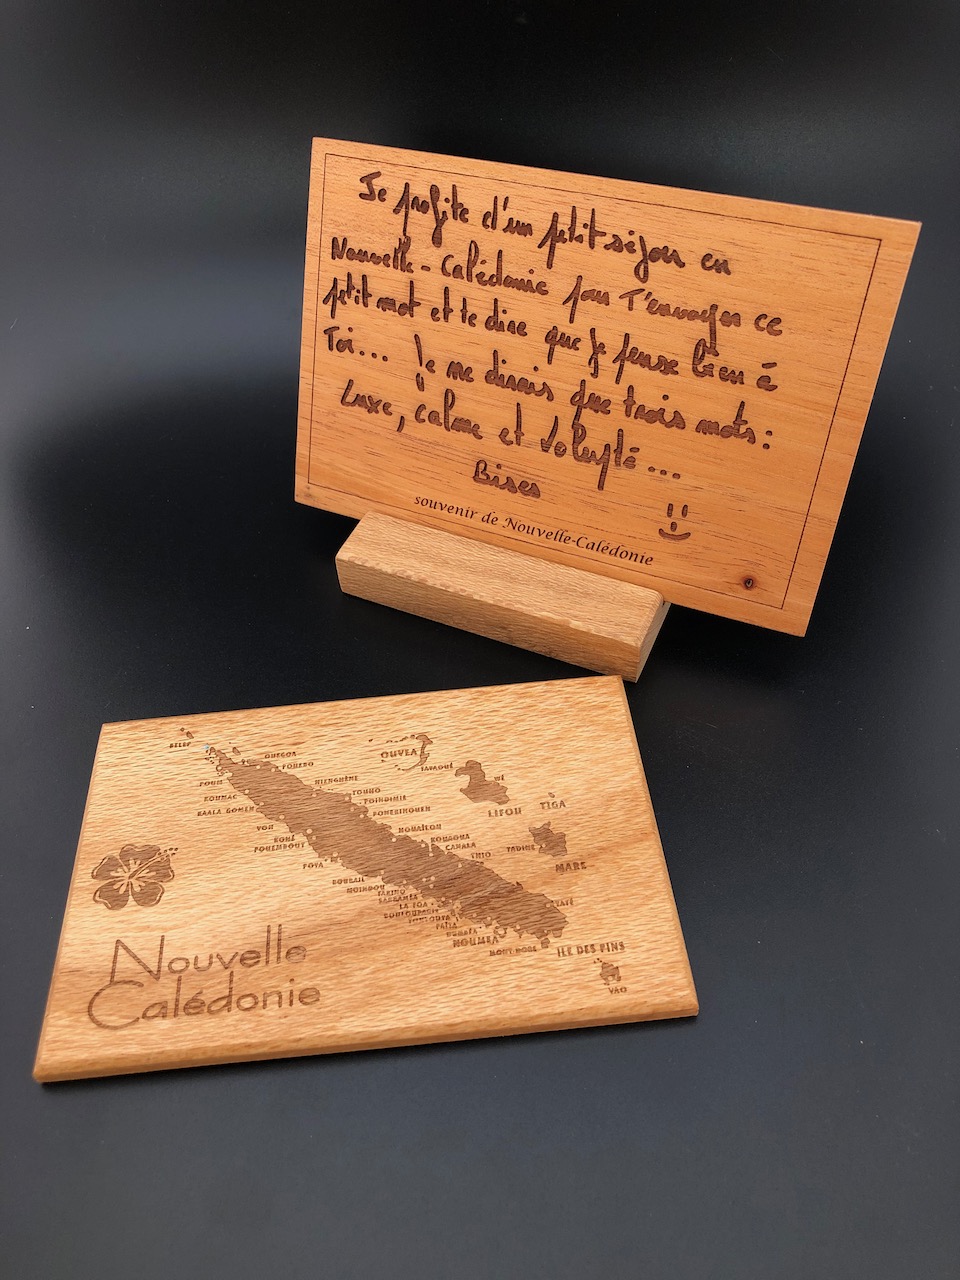 Je profite d'un petit séjour en
Nouvelle-Calédonie pour T'envoyer ce
petit mot et te dire que je pense bien à
Toi... Je ne dirais que trois mots:
"Luxe, calme et Volupté...
Bises
souvenir de Nouvelle-Calédonie
BELEP
OUEGOA
POUEBO
OUVEA
FAYAOUÉ
POUM
HIENGHÈNE
WÉ
KOUMAC
TOUHO
POINDIMIE
TIGA
KAALA GOMEN
PONERIHOUEN
LIFOU
VOH
HOUAÏLOU
KONÉ
KOUAOUA
POUEMBOUT
CANALA
TADINE
THIO
POYA
MARE
BOURAIL
MOINDOU
FARINO
SARRAMEA
LA FOA
YATÉ
BOULOUPARIS
TONTOUTA
PAÏTA
DUMBÉA
NOUMEA
MONT-DORE
ILE DES PINS
VAO
Nouvelle
Calédonie